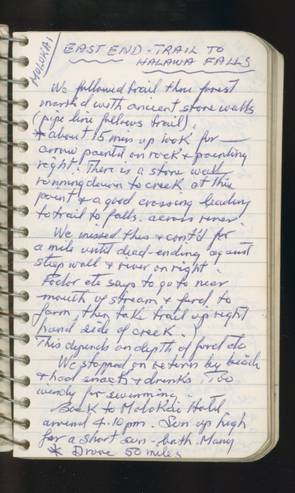 MOLOKAI
EAST END - TRAIL TO
HALAWA FALLS
We followed trail thru forest
marked with ancient stone walls
(pipe line follows trail).
* about 15 min up look for
arrow paint'd on rock & pointing
right. There is a stone wall
running down to creek at this
point & a good crossing leading
to trail to falls across river.
We missed this & cont'd for
a mile until dead-ending against
steep wall & river on right.
Fodor etc says to go to near
mouth of stream & ford to
farm, then take trail up right
hand side of creek.
This depends on depth of ford etc
We stopped on return by beach
& had snacks & drinks. Too
windy for swimming.
Back to Molokai Hotel
around 4:10 pm. Sun up high
for a short sun-bath. Many
* Drove 50 miles